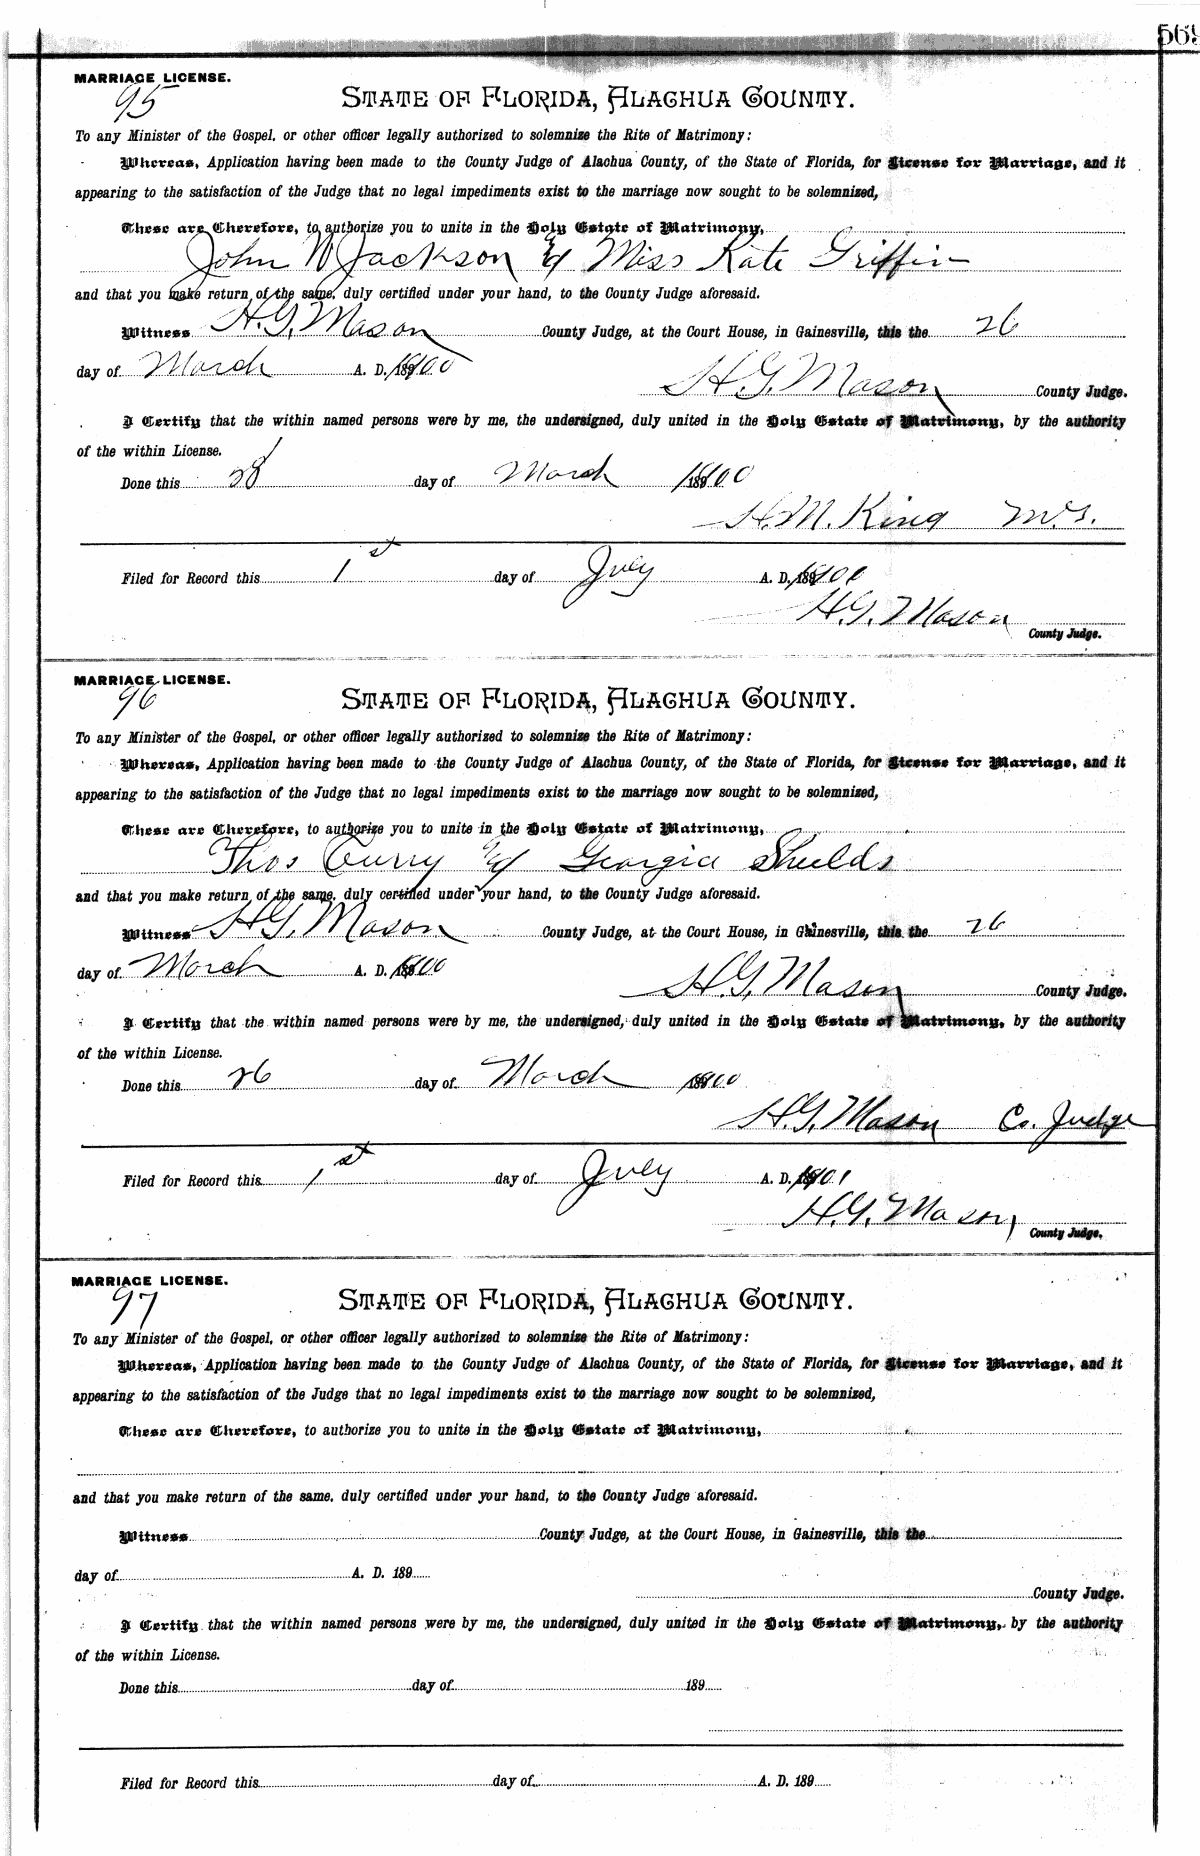 569
MARRIAGE LICENSE.
95
STATE OF FLORIDA, ALACHUA COUNTY.
To any Minister of the Gospel, or other officer legally authorized to solemnize the Rite of Matrimony:
Whereas, Application having been made to the County Judge of Alachua County, of the State of Florida, for License for Marriage, and it
appearing to the satisfaction of the Judge that no legal impediments exist to the marriage now sought to be solemnized,
These are Therefore, to authorize you to unite in the Holy Estate of Matrimony,
John W Jackson & Miss Kate Griffin
and that you make return of the same, duly certified under your hand, to the County Judge aforesaid.
Witness H.G. Mason County Judge, at the Court House, in Gainesville, this the 26
day of March A. D. 1900
H.G. Mason County Judge.
I Certify that the within named persons were by me, the undersigned, duly united in the Holy Estate of Matrimony, by the authority
of the within License.
Done this 28 day of March 1900
H.M. King M.G.
Filed for Record this 1st day of July A. D. 1901
H.G. Mason
County Judge.
MARRIAGE LICENSE.
96
STATE OF FLORIDA, ALACHUA COUNTY.
To any Minister of the Gospel, or other officer legally authorized to solemnize the Rite of Matrimony:
Whereas, Application having been made to the County Judge of Alachua County, of the State of Florida, for License for Marriage, and it
appearing to the satisfaction of the Judge that no legal impediments exist to the marriage now sought to be solemnized,
These are Therefore, to authorize you to unite in the Holy Estate of Matrimony,
Thos Curry & Georgia Shields
and that you make return of the same, duly certified under your hand, to the County Judge aforesaid.
Witness H.G. Mason County Judge, at the Court House, in Gainesville, this the 26
day of March A. D. 1900
H.G. Mason County Judge.
I Certify that the within named persons were by me, the undersigned, duly united in the Holy Estate of Matrimony, by the authority
of the within License.
Done this 26 day of March 1900
H.G. Mason Co. Judge
Filed for Record this 1st day of July A. D. 1901
H.G. Mason
County Judge.
MARRIAGE LICENSE.
97
STATE OF FLORIDA, ALACHUA COUNTY.
To any Minister of the Gospel, or other officer legally authorized to solemnize the Rite of Matrimony:
Whereas, Application having been made to the County Judge of Alachua County, of the State of Florida, for License for Marriage, and it
appearing to the satisfaction of the Judge that no legal impediments exist to the marriage now sought to be solemnized,
These are Therefore, to authorize you to unite in the Holy Estate of Matrimony,
and that you make return of the same, duly certified under your hand, to the County Judge aforesaid.
Witness County Judge, at the Court House, in Gainesville, this the
day of A. D. 189
County Judge.
I Certify that the within named persons were by me, the undersigned, duly united in the Holy Estate of Matrimony, by the authority
of the within License.
Done this day of 189
Filed for Record this day of A. D. 189